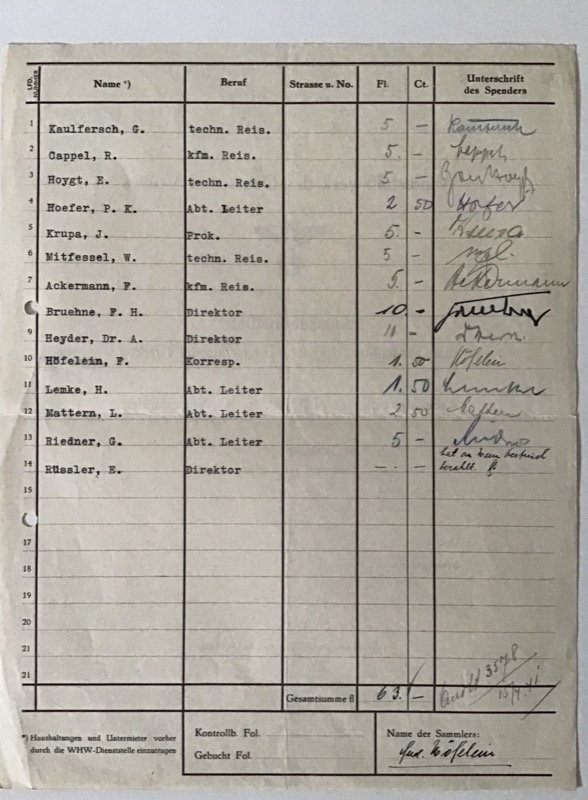 LFD. NUMMER Name *) Beruf Strasse u. No. Fl. Ct. Unterschrift des Spenders
1 Kaulfersch, G. techn. Reis. 5 —
2 Cappel, R. kfm. Reis. 5. — Cappel
3 Hoygt, E. techn. Reis. 5 —
4 Hoefer, P. K. Abt. Leiter 2 50 Höfer
5 Krupa, J. Prok. 5. - Krupa
6 Mitfessel, W. techn. Reis. 5 —
7 Ackermann, F. kfm. Reis. 5. - Ackermann
Bruehne, F. H. Direktor 10. —
9 Heyder, Dr. A. Direktor 10 -
10 Höfelein, F. Korresp. 1. 50 Höfelein
11 Lemke, H. Abt. Leiter 1. 50 Lemke
12 Mattern, L. Abt. Leiter 2 50
13 Riedner, G. Abt. Leiter 5 -
14 Rüssler, E. Direktor —. -
15
17
18
19
20
21
21
Gesamtsumme fl 63. —
3578
15/4 41
*) Haushaltungen und Untermieter vorher
durch die WHW-Dienststelle einzutragen
Kontrollb. Fol.
Gebucht Fol.
Name der Sammlers:
Höfelein